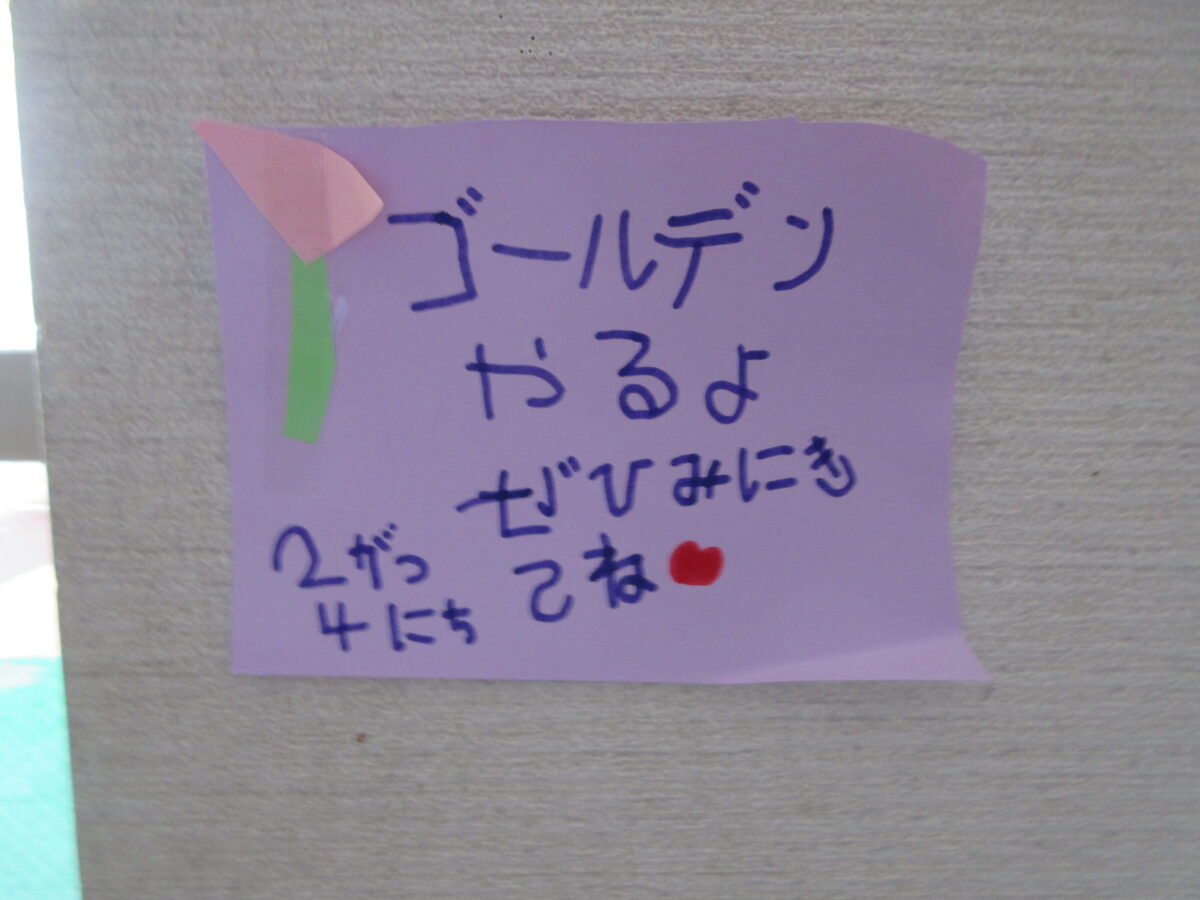 ゴールデン
やるよ
ぜひみにき
てね
2がつ
4にち